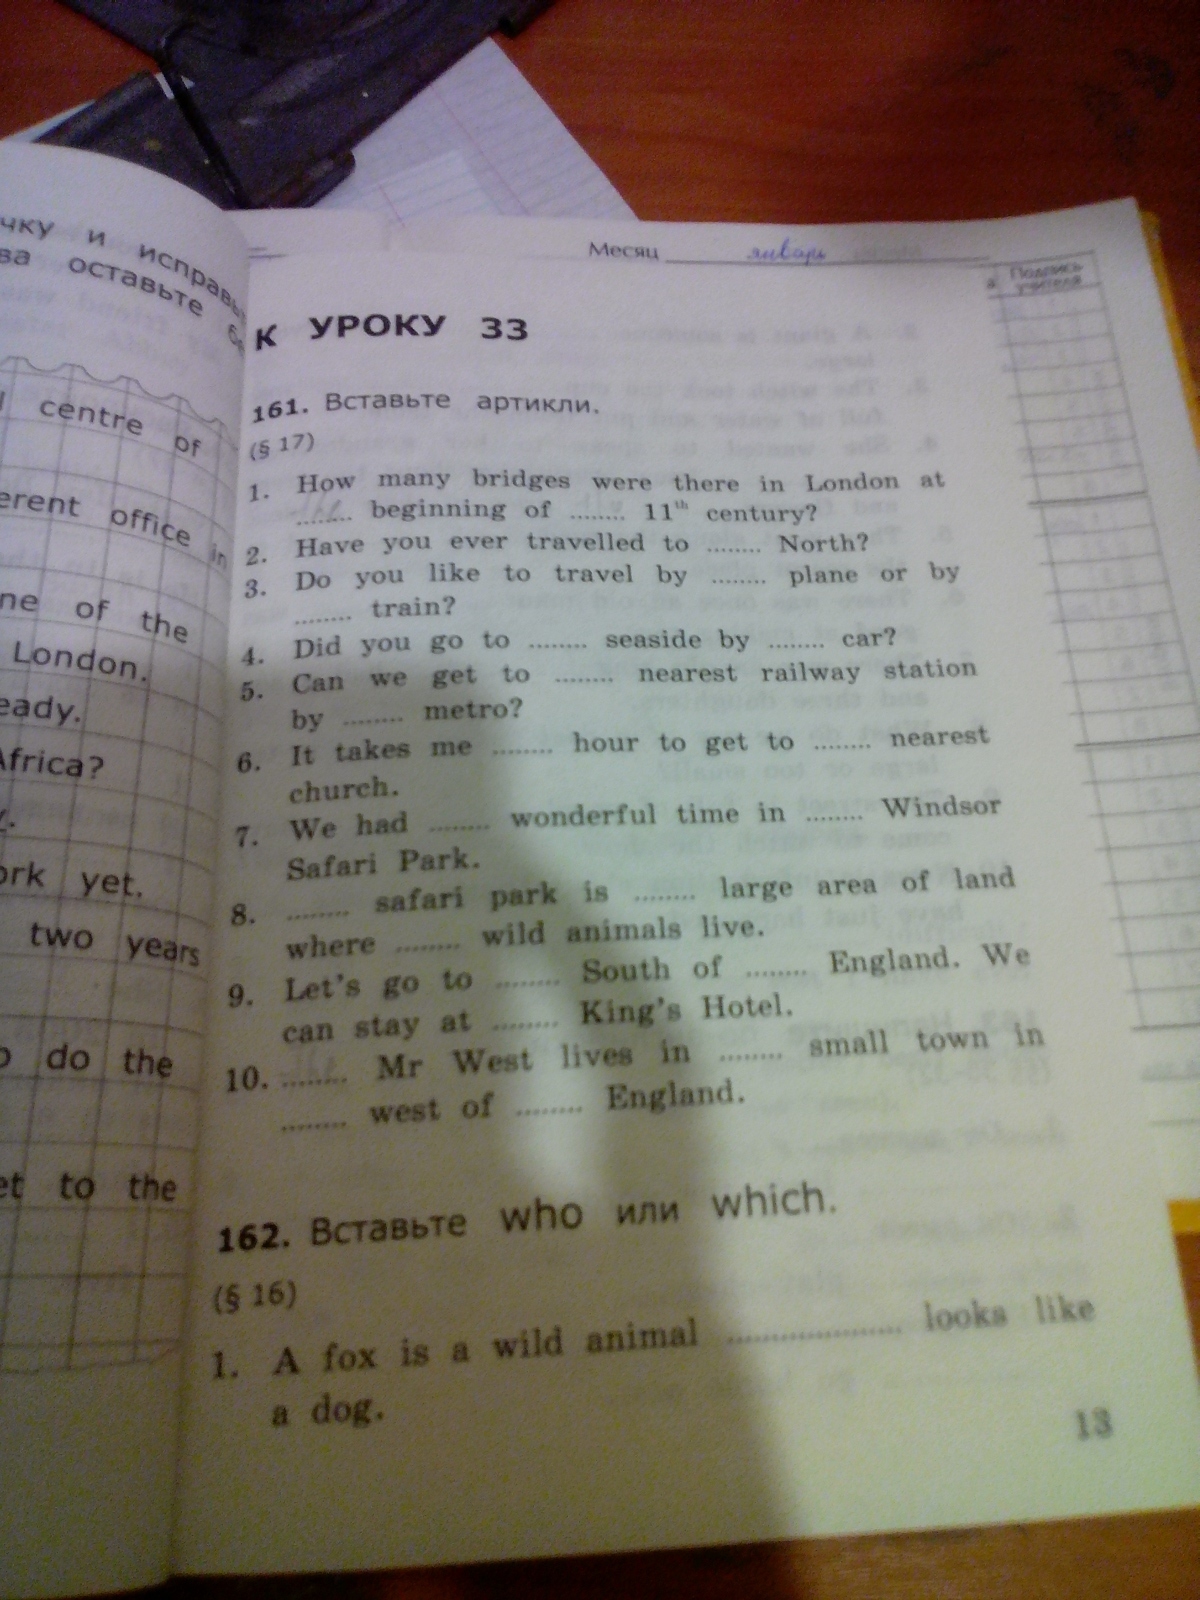 чку и исправь
ва оставьте
centre of
erent office in
ne of the
London.
eady.
Africa?
ork yet.
two years
do the
et to the
Месяц январь
Подпись
учителя
К УРОКУ 33
161. Вставьте артикли.
(§ 17)
1. How many bridges were there in London at
........ beginning of ........ 11th century?
2. Have you ever travelled to ........ North?
3. Do you like to travel by ........ plane or by
........ train?
4. Did you go to ........ seaside by ........ car?
5. Can we get to ........ nearest railway station
by ........ metro?
6. It takes me ........ hour to get to ........ nearest
church.
7. We had ........ wonderful time in ........ Windsor
Safari Park.
8. ........ safari park is ........ large area of land
where ........ wild animals live.
9. Let's go to ........ South of ........ England. We
can stay at ........ King's Hotel.
10. ........ Mr West lives in ........ small town in
........ west of ........ England.
162. Вставьте who или which.
(§ 16)
1. A fox is a wild animal ..................... looks like
a dog.
13